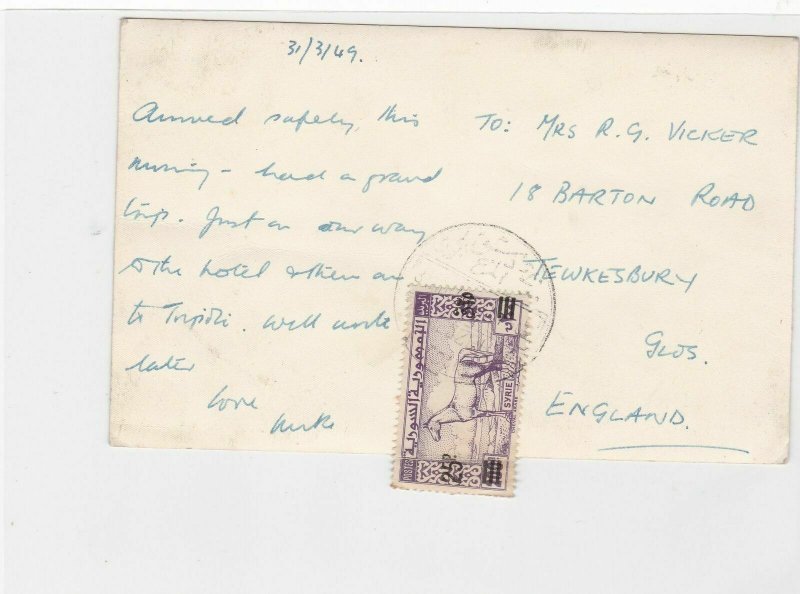 31/3/49.
Arrived safely, this
morning - had a grand
trip. Just on our way
to the hotel & then on
to Tripoli. Will write
later
love
Mike
To: MRS R. G. VICKER
18 BARTON ROAD
TEWKESBURY
GLOS.
ENGLAND.
الجمهورية السورية
POSTES
SYRIE
25P